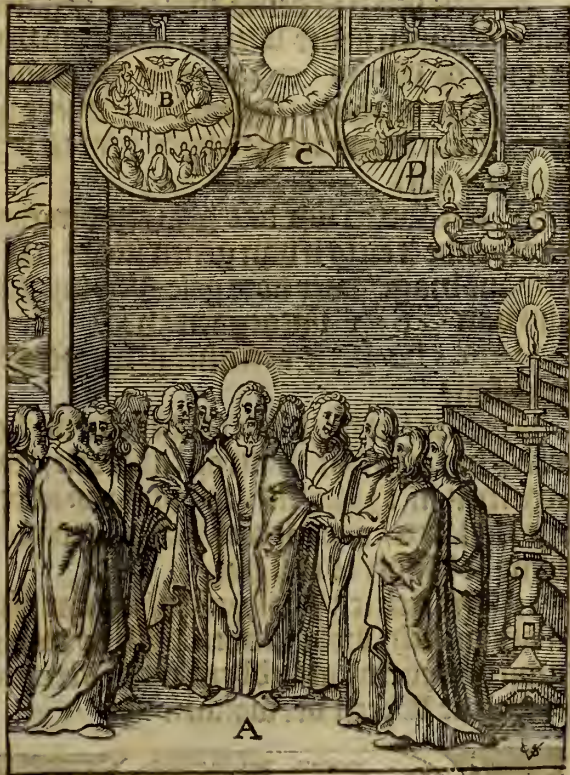 B
C
D
A